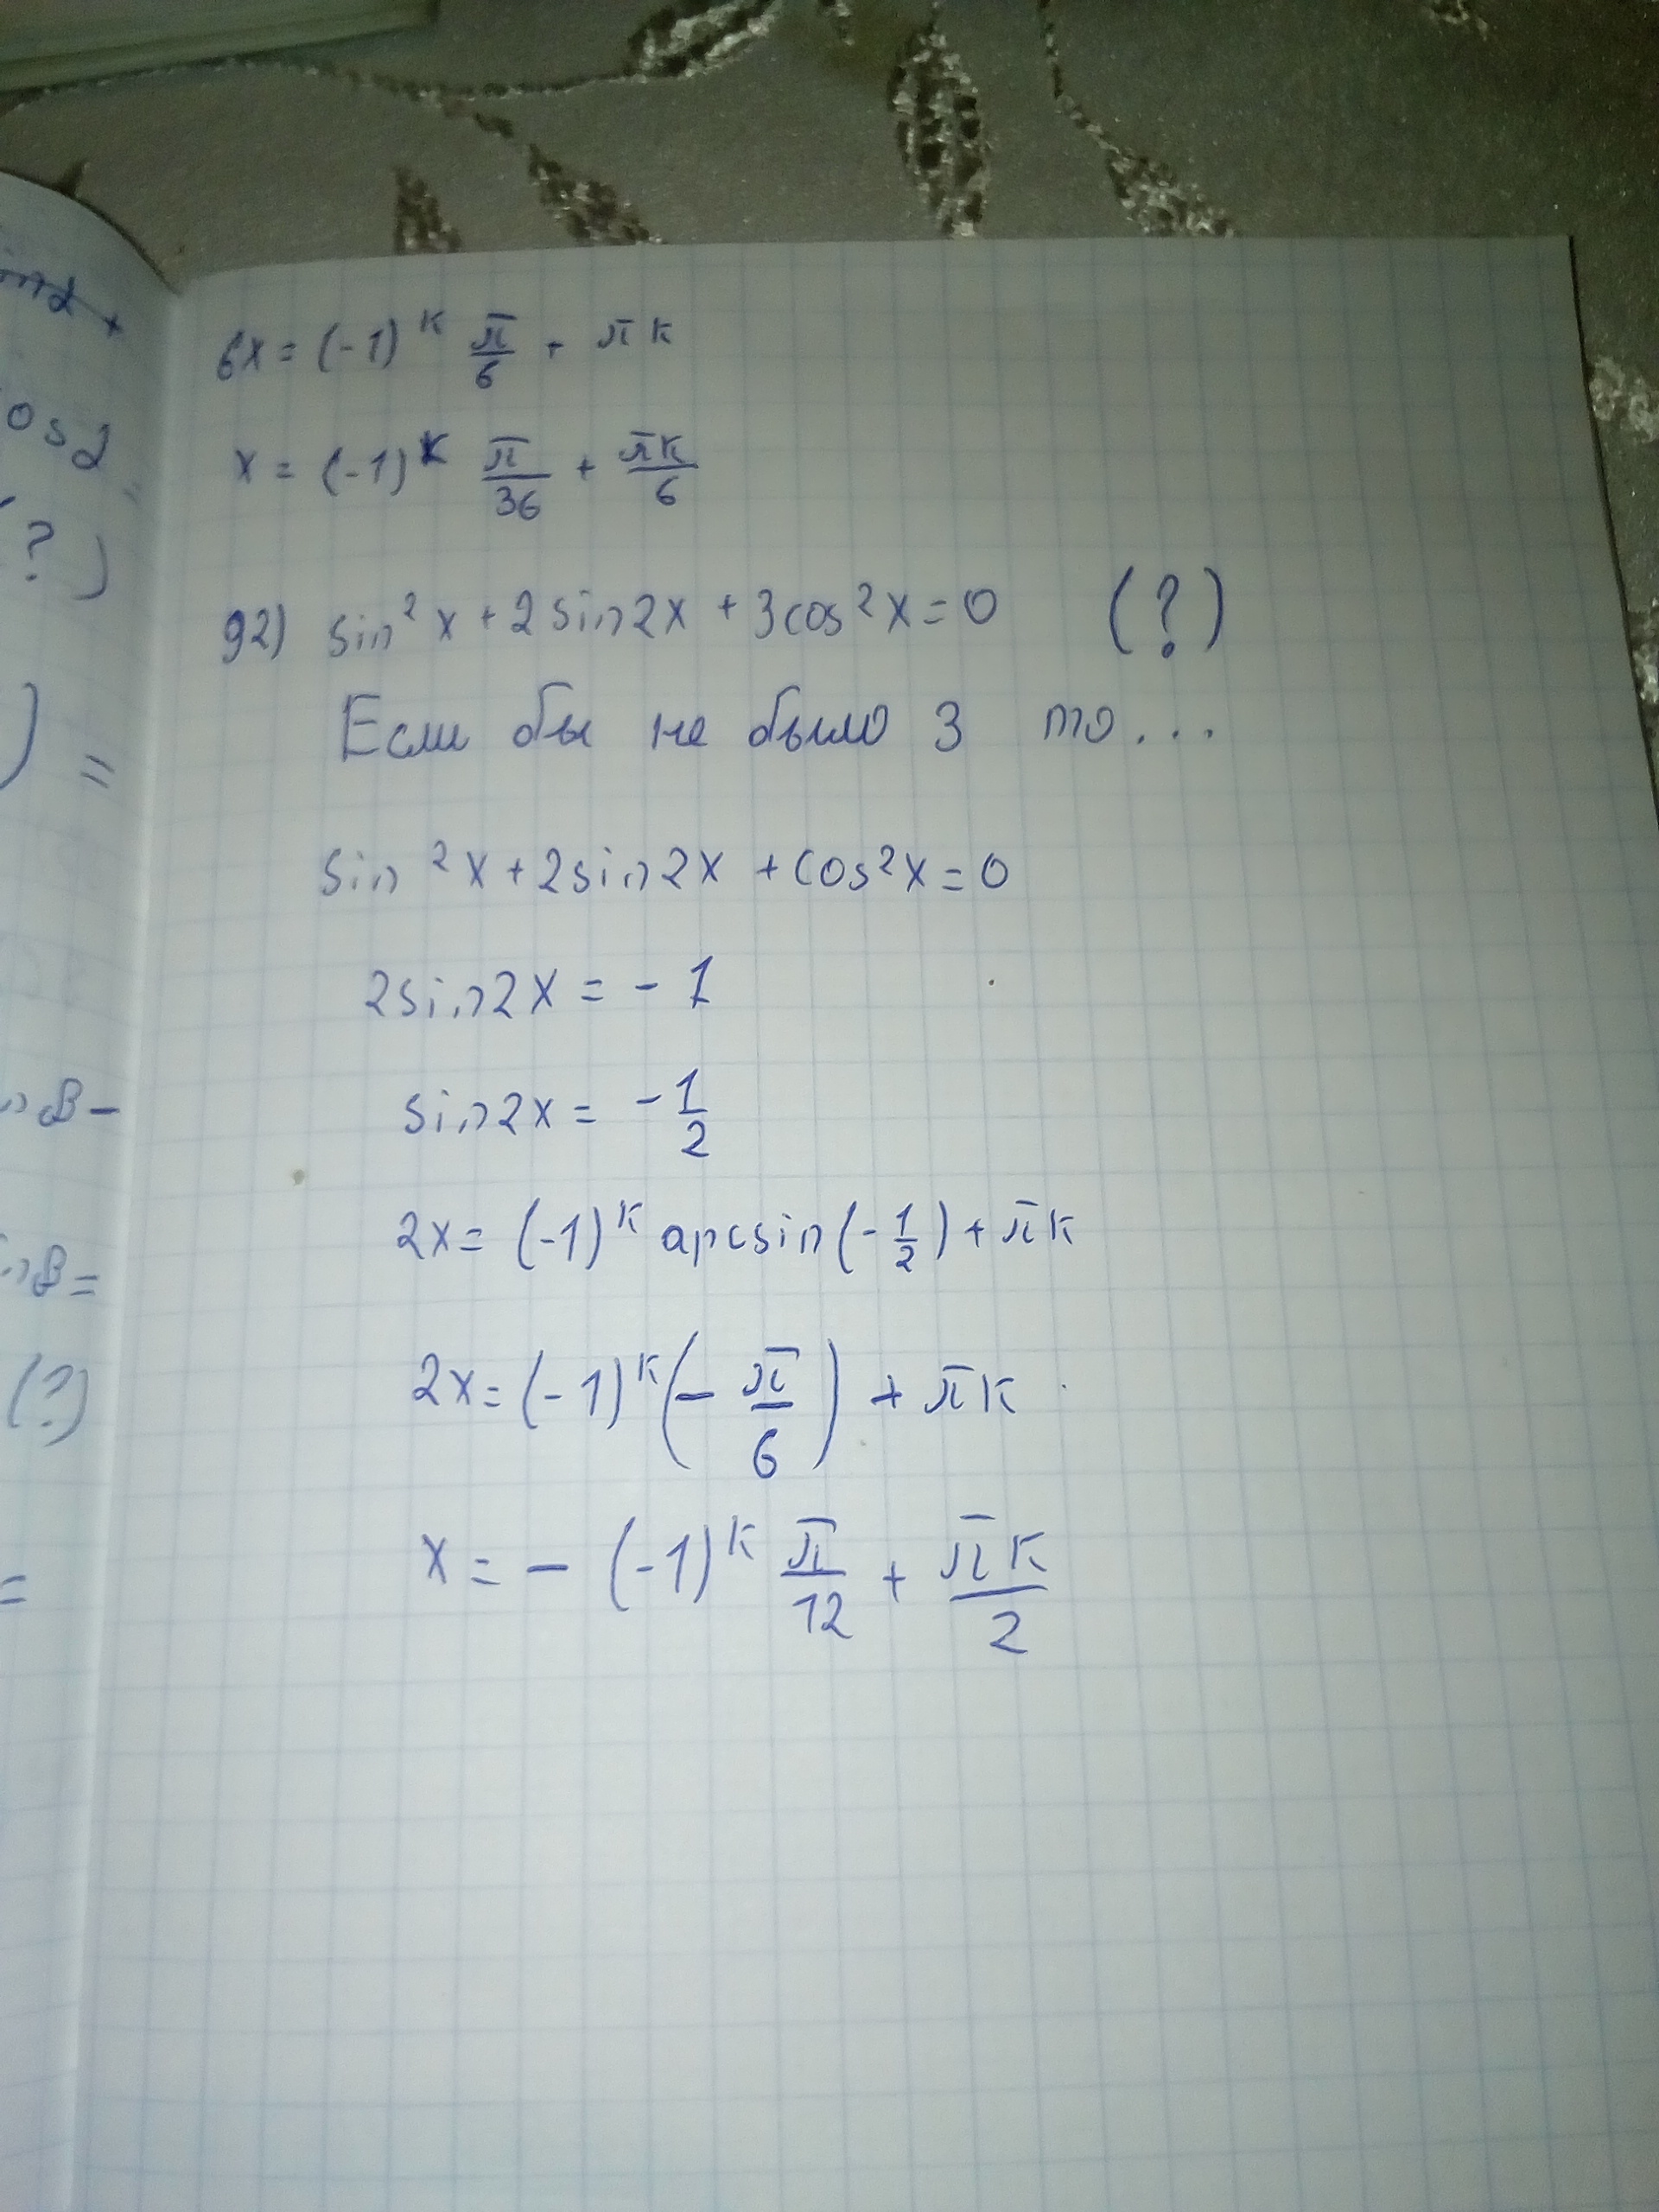 6x = (-1)^к π/6 + πк
x = (-1)^к π/36 + πк/6
92) sin²x + 2sin2x + 3cos²x = 0 (?)
Если бы не было 3 то...
sin²x + 2sin2x + cos²x = 0
2sin2x = - 1
sin2x = - 1/2
2x = (-1)^к арcsin(- 1/2) + πк
2x = (-1)^к (- π/6) + πк
x = - (-1)^к π/12 + πк/2
os2
(?)
) =
(?)
=